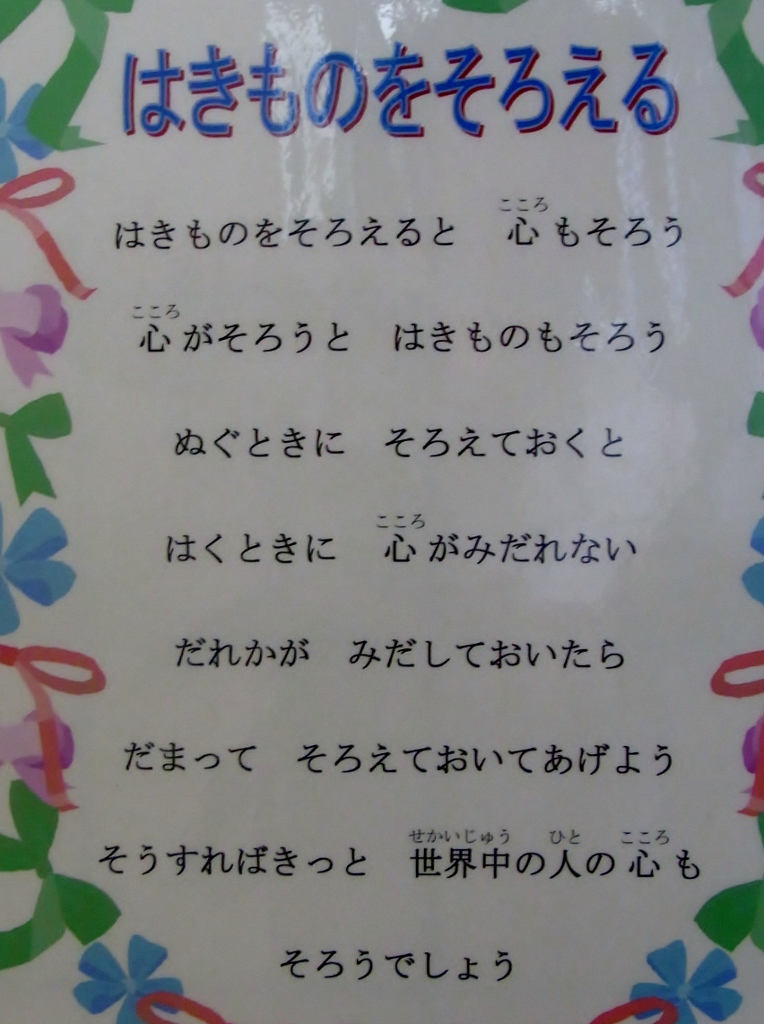 はきものをそろえる
はきものをそろえると　心もそろう
心がそろうと　はきものもそろう
ぬぐときに　そろえておくと
はくときに　心がみだれない
だれかが　みだしておいたら
だまって　そろえておいてあげよう
そうすればきっと　世界中の人の心も
そろうでしょう